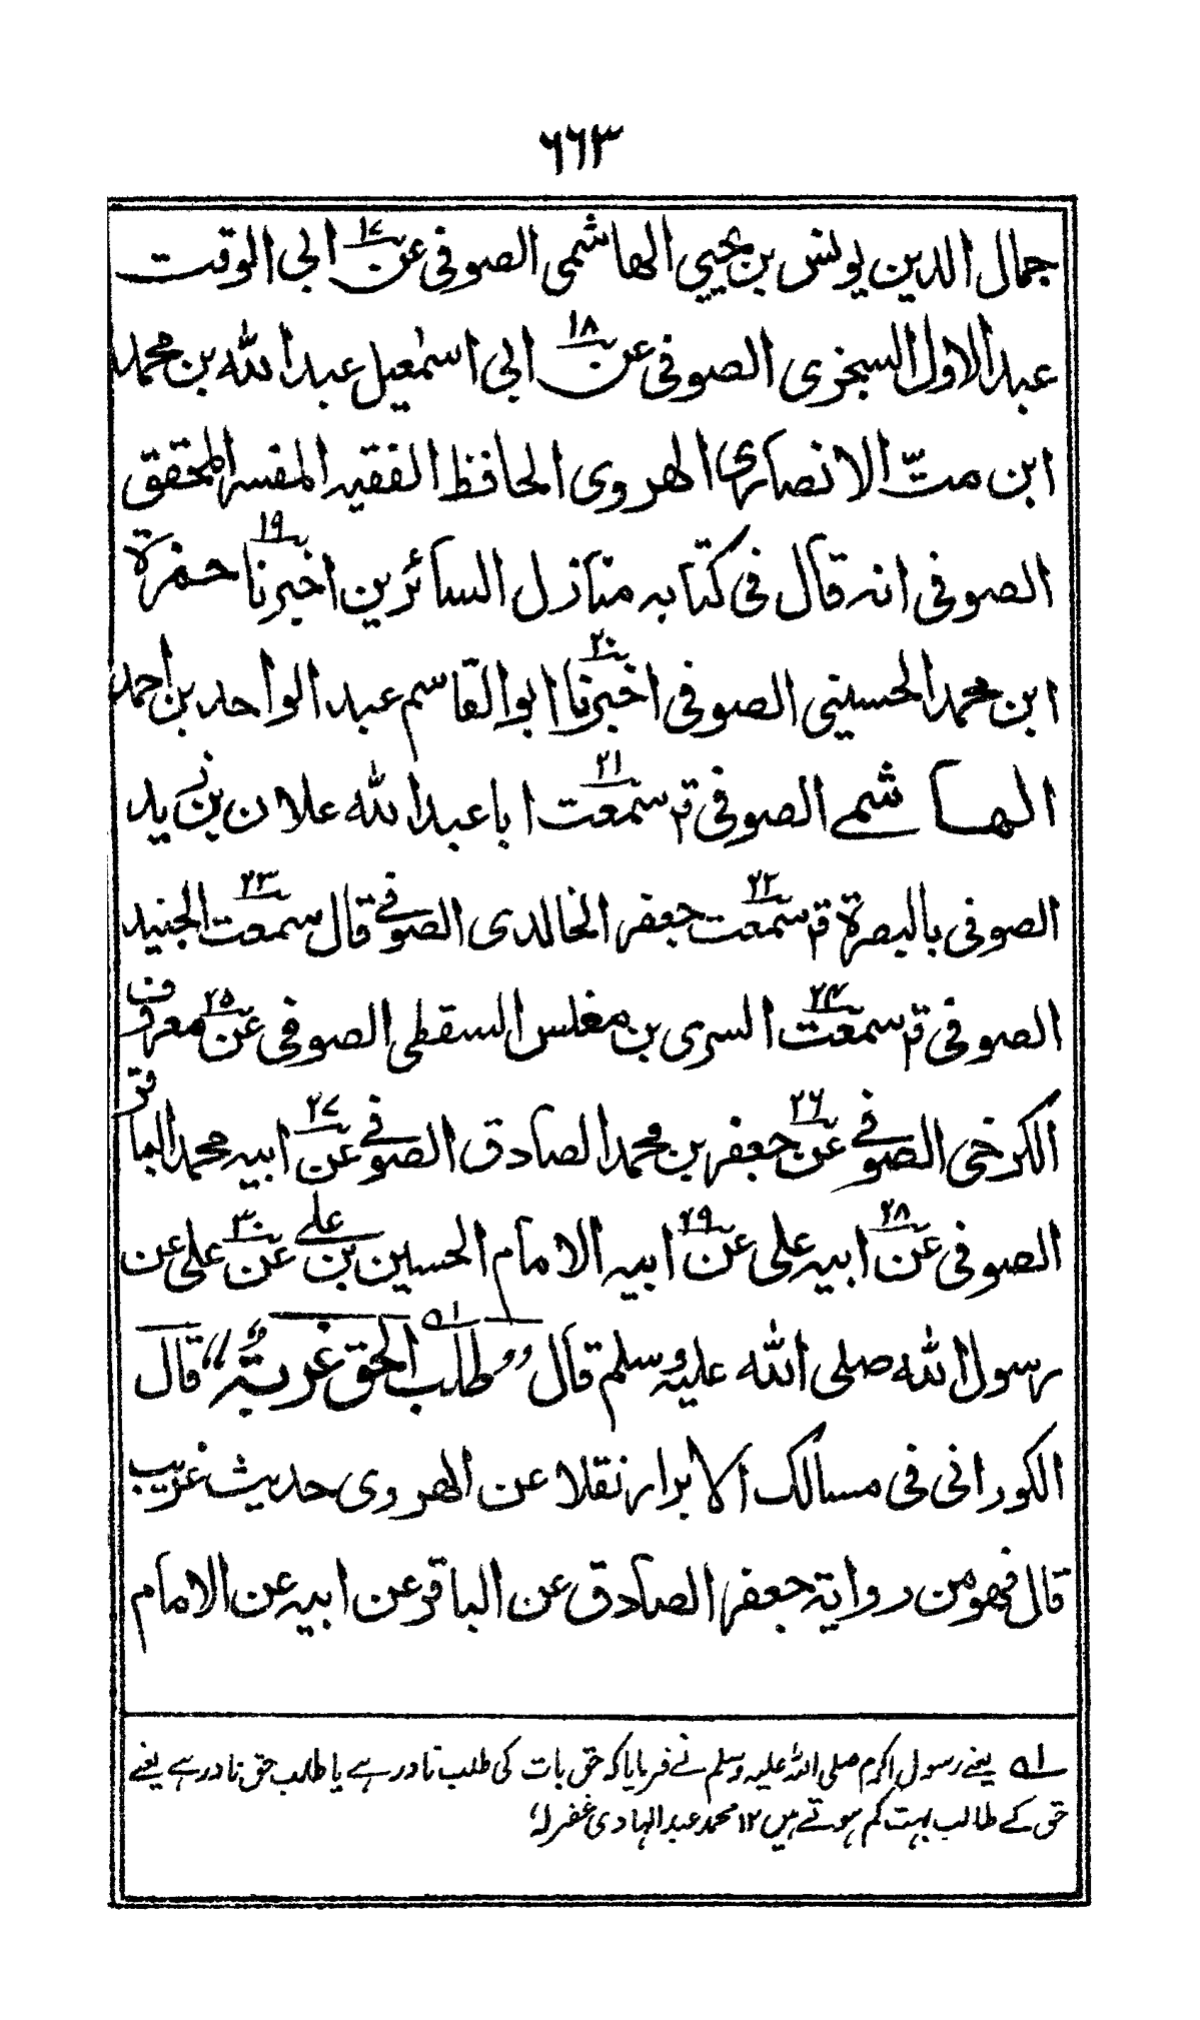 ٦٦٣
جمال الدين يونس بن يحيى الهاشمى الصوفى عن ١٧ ابى الوقت
عبد الاول السجزى الصوفى عن ١٨ ابى اسمٰعيل عبد الله بن محمد
ابن متّ الانصارى الهروى الحافظ الفقيه المفسر المحقق
الصوفى انه قال فى كتابه منازل السائرين اخبرنا ١٩ حمزة
ابن محمد الحسينى الصوفى اخبرنا ٢٠ ابو القاسم عبد الواحد بن احمد
الهاشمے الصوفى قم سمعت ٢١ ابا عبد الله علان بن زيد
الصوفى بالبصرة قم سمعت ٢٢ جعفر الخالدى الصوفے قال سمعت ٢٣ الجنيد
الصوفى قم سمعت ٢٤ السرى بن مغلس السقطى الصوفى عن ٢٥ معروف
الكرخى الصوفے عن ٢٦ جعفر بن محمد الصادق الصوفے عن ٢٧ ابيه محمد الباقر
الصوفى عن ٢٨ ابيه على عن ٢٩ ابيه الامام الحسين بن علے عن ٣٠ على عن
رسول الله صلى الله عليه وسلم قال ”طلب الحق غربةٌ“ ١ه قال
الكورانى فى مسالك الابرار نقلا عن الهروى حديث غريب
قال فهو من رواية جعفر الصادق عن الباقر عن ابيه عن الامام
١ه یعنے رسول اکرم صلی اللہ علیہ وسلم نے فرمایا کہ حق بات کی طلب نادر ہے یا طالب حق نادر ہے یعنے
حق کے طالب بہت کم ہوتے ہیں ١٢ محمد عبد الہادی غفرلہٗ